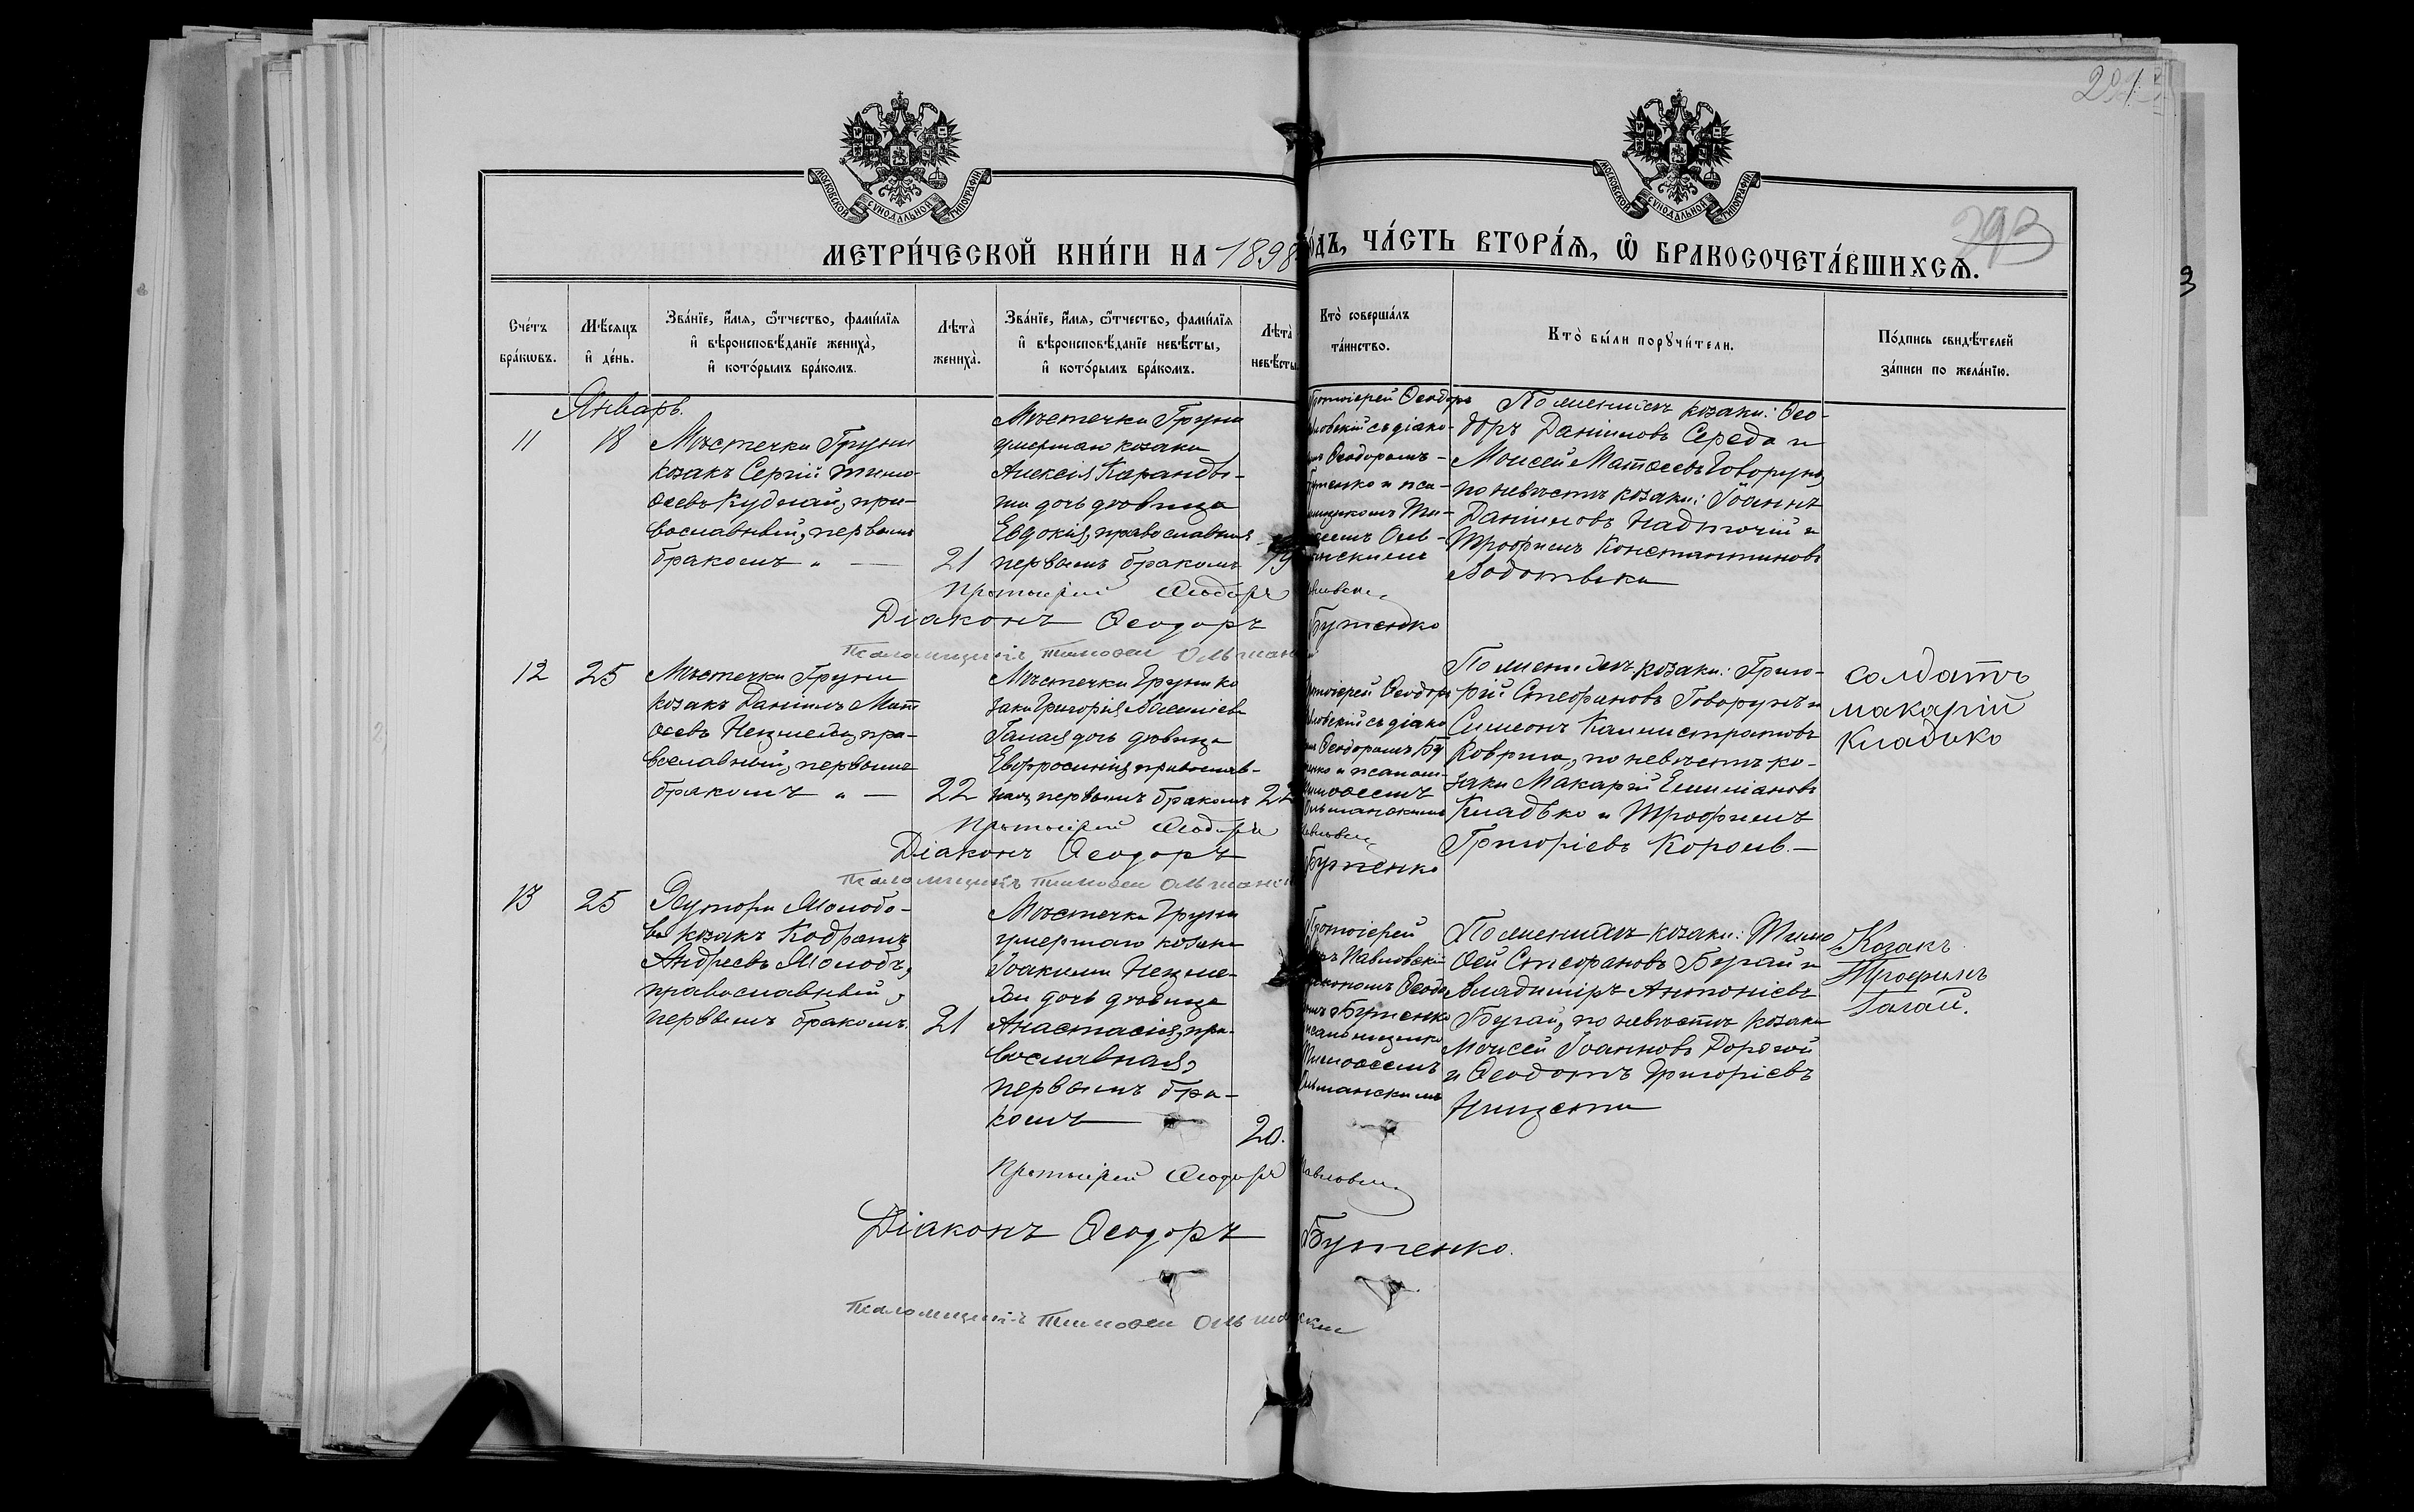 291
293
3
МОСКОВСКОЙ СУНОДАЛЬНОЙ ТИПОГРАФІИ
МОСКОВСКОЙ СУНОДАЛЬНОЙ ТИПОГРАФІИ
МЕТРИ́ЧЕСКОЙ КНИ́ГИ НА 1898
О́ДЪ, ЧА́СТЬ ВТОРА́Я, Ѡ҆ БРАКОСОЧЕТА́ВШИХСѦ.
Сче́тъ
бра́кѡвъ.
Мѣ́сяцъ
и҆ де́нь.
Зва́нїе, и҆́мѧ, ѻ҆́тчество, фами́лїѧ
и҆ вѣроисповѣ́данїе жениха̀,
и҆ кото́рымъ бра́комъ.
Лѣ́та
жениха̀.
Зва́нїе, и҆́мѧ, ѻ҆́тчество, фами́лїѧ
и҆ вѣроисповѣ́данїе невѣ́сты,
и҆ кото́рымъ бра́комъ.
Лѣ́та
невѣ́сты
Кто̀ соверша́лъ
та́инство.
Кто̀ бы́ли порꙋчи́тели.
По́дпись свидѣ́телей
за́писи по жела́нїю.
Январь.
11
18
Мѣстечка Груни
козакъ Сергій Тимо-
ѳеевъ Кудлай, пра-
вославный, первымъ
бракомъ " —
21
Мѣстечка Груни
умершаго козака
Алексія Каранды-
ши дочь дѣвица
Евдокія, православная
первымъ бракомъ
19
Протоіерей Ѳеодоръ
ловскій съ діако-
Ѳеодоромъ -
тенко и пса-
ломщикомъ Ти-
ѳеемъ Оль-
шанскимъ
По женихѣ козаки: Ѳео-
доръ Даніиловъ Середа и
Моисей Матѳеевъ Говорунъ,
по невѣстѣ козаки: Іоаннъ
Даніиловъ Надточій и
Трофимъ Константиновъ
Протоіерей Ѳеодоръ Павловскій
Діаконъ Ѳеодоръ Бутенко
Псаломщикъ Тимоѳей Ольшанс
12
25
Мѣстечка Груни
козакъ Даніилъ Мат
ѳеевъ Незмеша, пра-
вославный, первымъ
бракомъ " —
22
Мѣстечка Груни ко
зака Григорія Василіева
Галая дочь дѣвица
Евфросинія, православ-
ная, первымъ бракомъ
22
Протоіерей Ѳеодоръ
ловскій съ діако
Ѳеодоромъ Бу
тенко и псалом-
Тимоѳеемъ
Ольшанскимъ
По женихѣ козаки: Григо-
рій Стефановъ Говорунъ и
Симеонъ Каллистратовъ
Коврига, по невѣстѣ ко-
заки Макарій Емиліановъ
Кладько и Трофимъ
Григоріевъ Король.—
солдатъ
макарій
Кладько
Протоіерей Ѳеодоръ Павловскій
Діаконъ Ѳеодоръ Бутенко
Псаломщикъ Тимоѳей Ольшанск
13
25
Хутора Молодо-
ва козакъ Кодратъ
Андреевъ Молодъ,
православный,
первымъ бракомъ.
21
Мѣстечка Груни
умершаго козака
Іоакима Незме-
ши дочь дѣвица
Анастасія, пра-
вославная,
первымъ бра-
комъ —
20.
Протоіерей
Павловскій
діакономъ Ѳеодо
Бутенко
псаломщикомъ
Тимоѳеемъ
Ольшанскимъ
По женихѣ козаки: Тимо
ѳей Стефановъ Бугай и
Владиміръ Антоніевъ
Бугай, по невѣстѣ козаки
Моисей Іоанновъ Дорогой
и Ѳеодотъ Григоріевъ
Нищета
Козакъ
Трофимъ
Галай.
Протоіерей Ѳеодоръ Павловскій
Діаконъ Ѳеодоръ Бутенко.
Псаломщикъ Тимоѳей Ольшанскій